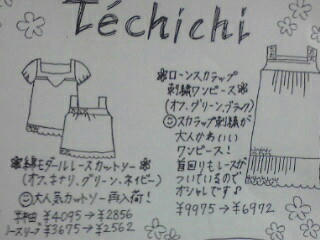 Téchichi
❀ローンスカラップ
刺繍ワンピース❀
(オフ、グリーン、ブラック)
スカラップ刺繍が
大人かわいい
ワンピース!
首回りもレースが
ついているので
オシャレです♪
¥9975→¥6972
❀綿モダールレースカットソー❀
(オフ、キナリ、グリーン、ネイビー)
大人気カットソー再入荷!
半袖 ¥4095→¥2856
ノースリーブ ¥3675→¥2562